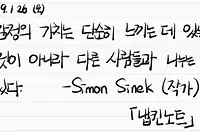 9.1.26 (목)
감정의 가치는 단순히 느끼는 데 있는
것이 아니라 다른 사람들과 나누는
있다. -Simon Sinek (작가)
「냅킨노트」